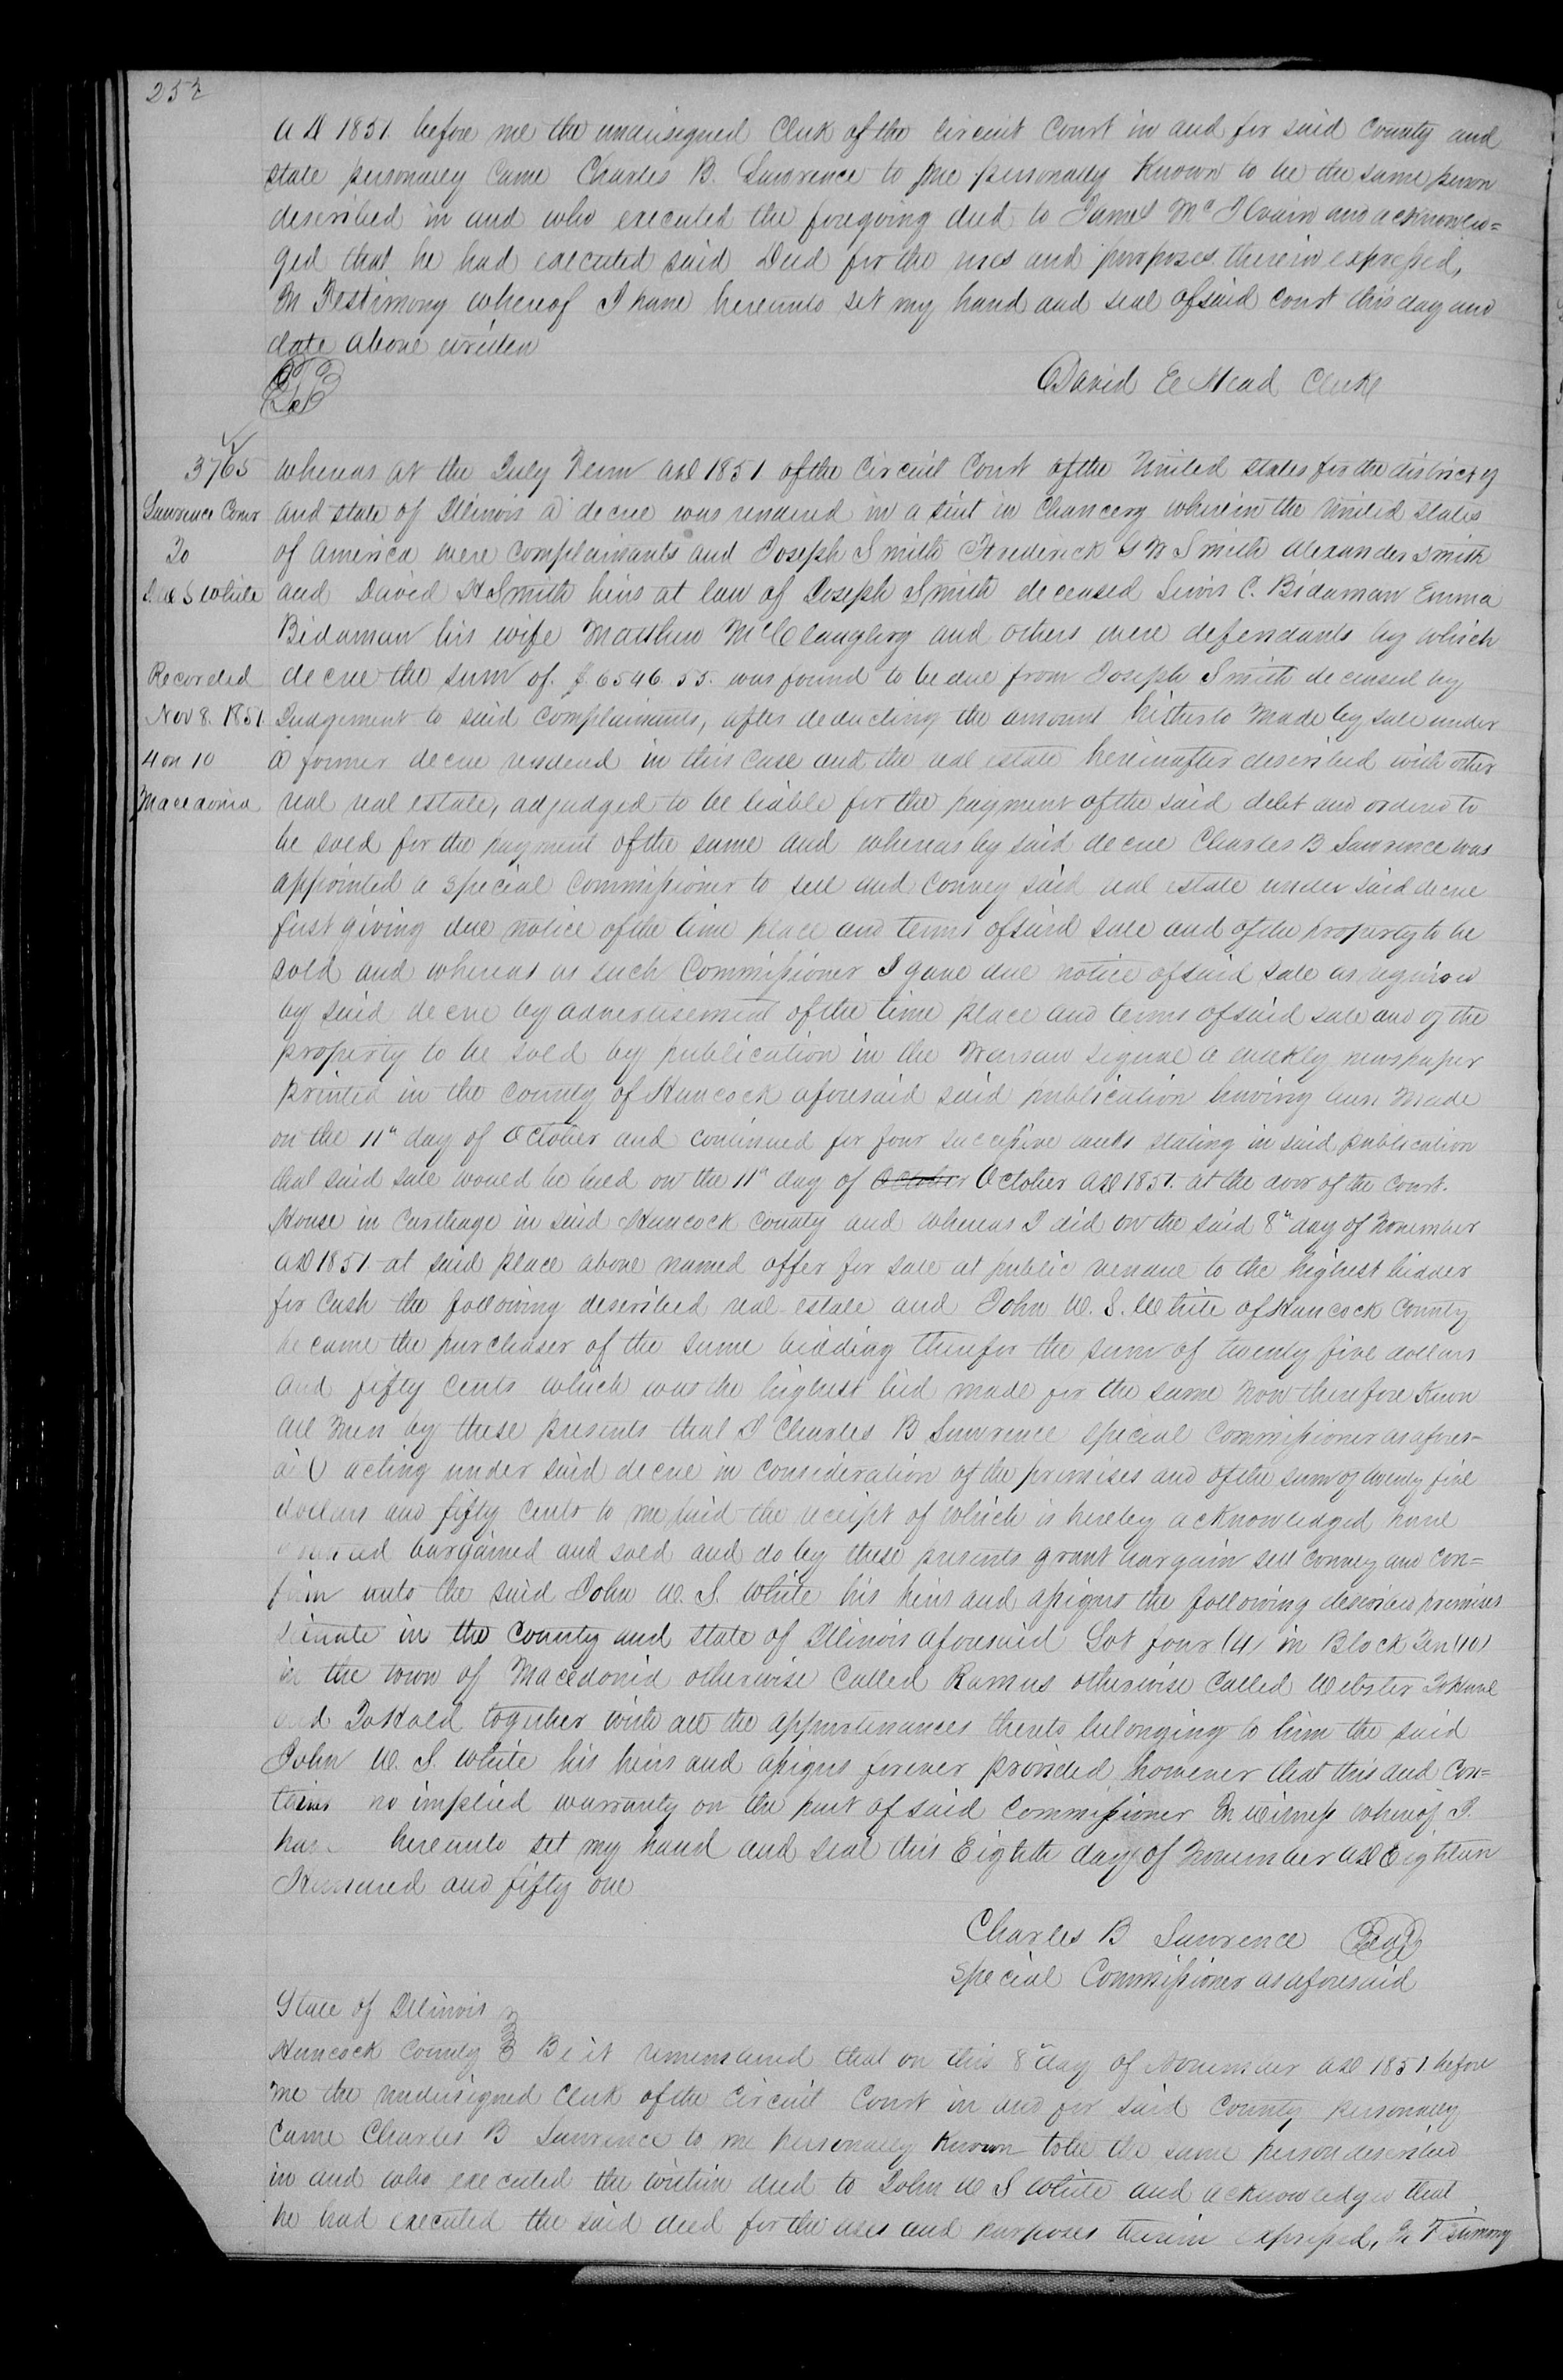 252
A D 1851. before me the undersigned Clerk of the Circuit Court in and for said County and
state personally Came Charles B. Lawrence to me personally Known to be the same person
described in and who executed the foregoing deed to James McIlvain and acknowled=
ged that he had executed said Deed for the uses and purposes therein expressed,
In Testimony whereof I have hereunto set my hand and seal of said Court this day and
date above written
David E Head Clerk
3765
Lawrence Comr
To
White
Recorded
Nov 8. 1851.
4 on 10
Macedonia
Whereas at the July Term AD 1851 of the Circuit Court of the United States for the district of
and state of Illinois a decree was rendered in a suit in Chancery wherein the United States
of America were Complainants and Joseph Smith Frederick G W Smith Alexander Smith
and David H Smith heirs at law of Joseph Smith deceased Lewis C. Bidaman Emma
Bidaman his wife Matthew McClaughery and others were defendants by which
decree the sum of $6546.55. was found to be due from Joseph Smith deceased by
Judgement to said Complainants, after deducting the amount hitherto made by sale under
a former decree rendered in this Case and the real estate hereinafter described with other
real real estate, adjudged to be liable for the payment of the said debt and ordered to
be sold for the payment of the same and whereas by said decree Charles B Lawrence was
appointed a special Commissioner to sell and Convey said real estate under said decree
first giving due notice of the time place and terms of said sale and of the property to be
sold and whereas as such Commissioner I gave due notice of said sale as required
by said decree by advertisement of the time place and terms of said sale and of the
property to be sold by publication in the Warsaw Signal a weekly newspaper
printed in the County of Hancock aforesaid said publication having been made
on the 11th day of October and continued for four successive weeks stating in said publication
that said sale would be held on the 11th day of October October AD 1851. at the door of the Court.
House in Carthage in said Hancock County and whereas I did on the said 8th day of November
AD 1851 at said place above named offer for sale at public vendue to the highest bidder
for Cash the following described real estate and John W. S. White of Hancock County
became the purchaser of the same bidding therefor the sum of twenty five dollars
and fifty cents which was the highest bid made for the same Now therefore Know
all Men by these presents that I Charles B Lawrence special Commissioner as afores-
aid acting under said decree in Consideration of the premises and of the sum of twenty five
dollars and fifty Cents to me paid the receipt of which is hereby acknowledged have
granted bargained and sold and do by these presents grant bargain sell Convey and Con=
firm unto the said John W. S. White his heirs and assigns the following described premises
situate in the County and state of Illinois aforesaid Lot four (4) in Block Ten (10)
in the town of Macedonia otherwise Called Ramus otherwise Called Webster To Have
and To Hold together with all the appurtenances thereto belonging to him the said
John W. S. White his heirs and assigns forever provided however that this deed Con=
tains no implied warranty on the part of said Commissioner In Witness Whereof I
have hereunto set my hand and seal this Eighth day of November AD Eighteen
Hundred and fifty one
Charles B Lawrence Seal
special Commissioner as aforesaid
State of Illinois
Hancock County Be it remembered that on this 8th day of November AD 1851. before
me the undersigned Clerk of the Circuit Court in and for said County personally
Came Charles B Lawrence to me personally Known to be the same person described
in and who executed the within deed to John W S White and acknowledged that
he had executed the said deed for the uses and purposes therein expressed, In Testimony